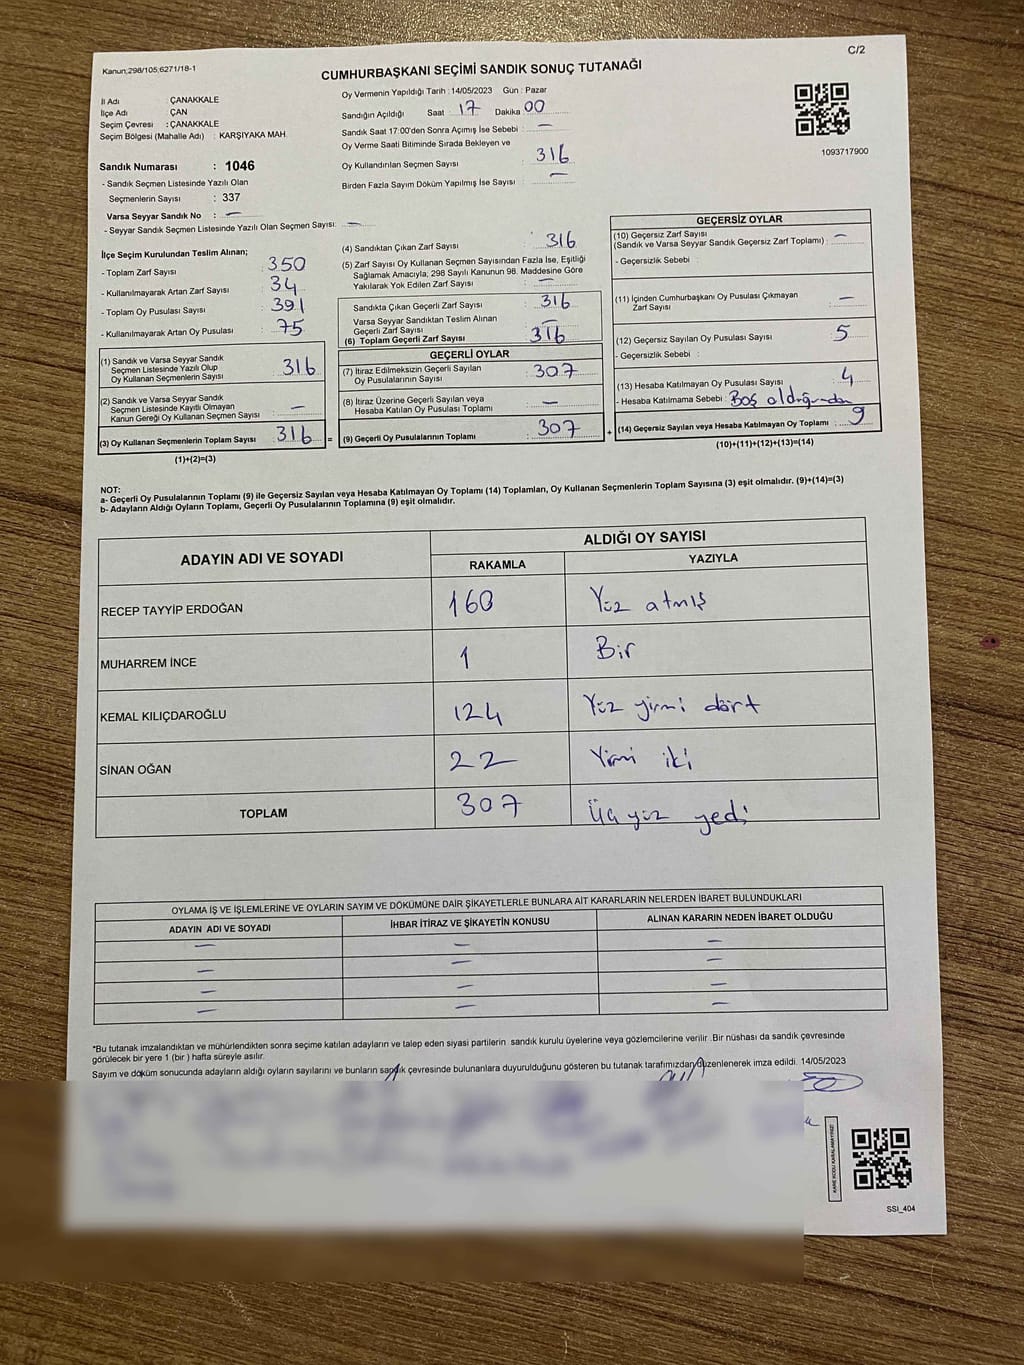 C/2
Kanun;298/105;6271/18-1
CUMHURBAŞKANI SEÇİMİ SANDIK SONUÇ TUTANAĞI
İl Adı : ÇANAKKALE
İlçe Adı : ÇAN
Seçim Çevresi : ÇANAKKALE
Seçim Bölgesi (Mahalle Adı) : KARŞIYAKA MAH.
Sandık Numarası : 1046
- Sandık Seçmen Listesinde Yazılı Olan
Seçmenlerin Sayısı : 337
Varsa Seyyar Sandık No : —
- Seyyar Sandık Seçmen Listesinde Yazılı Olan Seçmen Sayısı: —
Oy Vermenin Yapıldığı Tarih : 14/05/2023 Gün : Pazar
Sandığın Açıldığı Saat : 17 Dakika : 00
Sandık Saat 17:00'den Sonra Açımış İse Sebebi : —
Oy Verme Saati Bitiminde Sırada Bekleyen ve
Oy Kullandırılan Seçmen Sayısı : 316
Birden Fazla Sayım Döküm Yapılmış İse Sayısı : —
1093717900
İlçe Seçim Kurulundan Teslim Alınan;
- Toplam Zarf Sayısı : 350
- Kullanılmayarak Artan Zarf Sayısı : 34
- Toplam Oy Pusulası Sayısı : 391
- Kullanılmayarak Artan Oy Pusulası : 75
(1) Sandık ve Varsa Seyyar Sandık
Seçmen Listesinde Yazılı Olup
Oy Kullanan Seçmenlerin Sayısı : 316
(2) Sandık ve Varsa Seyyar Sandık
Seçmen Listesinde Kayıtlı Olmayan
Kanun Gereği Oy Kullanan Seçmen Sayısı : —
(3) Oy Kullanan Seçmenlerin Toplam Sayısı : 316 =
(1)+(2)=(3)
(4) Sandıktan Çıkan Zarf Sayısı : 316
(5) Zarf Sayısı Oy Kullanan Seçmen Sayısından Fazla İse, Eşitliği
Sağlamak Amacıyla; 298 Sayılı Kanunun 98. Maddesine Göre
Yakılarak Yok Edilen Zarf Sayısı : —
Sandıkta Çıkan Geçerli Zarf Sayısı : 316
Varsa Seyyar Sandıktan Teslim Alınan
Geçerli Zarf Sayısı : —
(6) Toplam Geçerli Zarf Sayısı : 316
GEÇERLİ OYLAR
(7) İtiraz Edilmeksizin Geçerli Sayılan
Oy Pusulalarının Sayısı : 307
(8) İtiraz Üzerine Geçerli Sayılan veya
Hesaba Katılan Oy Pusulası Toplamı : —
(9) Geçerli Oy Pusulalarının Toplamı : 307 +
GEÇERSİZ OYLAR
(10) Geçersiz Zarf Sayısı
(Sandık ve Varsa Seyyar Sandık Geçersiz Zarf Toplamı) : —
- Geçersizlik Sebebi :
(11) İçinden Cumhurbaşkanı Oy Pusulası Çıkmayan
Zarf Sayısı : —
(12) Geçersiz Sayılan Oy Pusulası Sayısı : 5
- Geçersizlik Sebebi :
(13) Hesaba Katılmayan Oy Pusulası Sayısı : 4
- Hesaba Katılmama Sebebi : Boş olduğundan
(14) Geçersiz Sayılan veya Hesaba Katılmayan Oy Toplamı : 9
(10)+(11)+(12)+(13)=(14)
NOT:
a- Geçerli Oy Pusulalarının Toplamı (9) ile Geçersiz Sayılan veya Hesaba Katılmayan Oy Toplamı (14) Toplamları, Oy Kullanan Seçmenlerin Toplam Sayısına (3) eşit olmalıdır. (9)+(14)=(3)
b- Adayların Aldığı Oyların Toplamı, Geçerli Oy Pusulalarının Toplamına (9) eşit olmalıdır.
ADAYIN ADI VE SOYADI ALDIĞI OY SAYISI
RAKAMLA YAZIYLA
RECEP TAYYİP ERDOĞAN 160 Yüz atmış
MUHARREM İNCE 1 Bir
KEMAL KILIÇDAROĞLU 124 Yüz yirmi dört
SİNAN OĞAN 22 Yirmi iki
TOPLAM 307 Üç yüz yedi
OYLAMA İŞ VE İŞLEMLERİNE VE OYLARIN SAYIM VE DÖKÜMÜNE DAİR ŞİKAYETLERLE BUNLARA AİT KARARLARIN NELERDEN İBARET BULUNDUKLARI
ADAYIN ADI VE SOYADI İHBAR İTİRAZ VE ŞİKAYETİN KONUSU ALINAN KARARIN NEDEN İBARET OLDUĞU
— — —
— — —
— — —
— — —
*Bu tutanak imzalandıktan ve mühürlendikten sonra seçime katılan adayların ve talep eden siyasi partilerin sandık kurulu üyelerine veya gözlemcilerine verilir .Bir nüshası da sandık çevresinde
görülecek bir yere 1 (bir ) hafta süreyle asılır.
Sayım ve döküm sonucunda adayların aldığı oyların sayılarını ve bunların sandık çevresinde bulunanlara duyurulduğunu gösteren bu tutanak tarafımızdan düzenlenerek imza edildi. 14/05/2023
KARE KODU KARALAMAYINIZ!
SSI_404